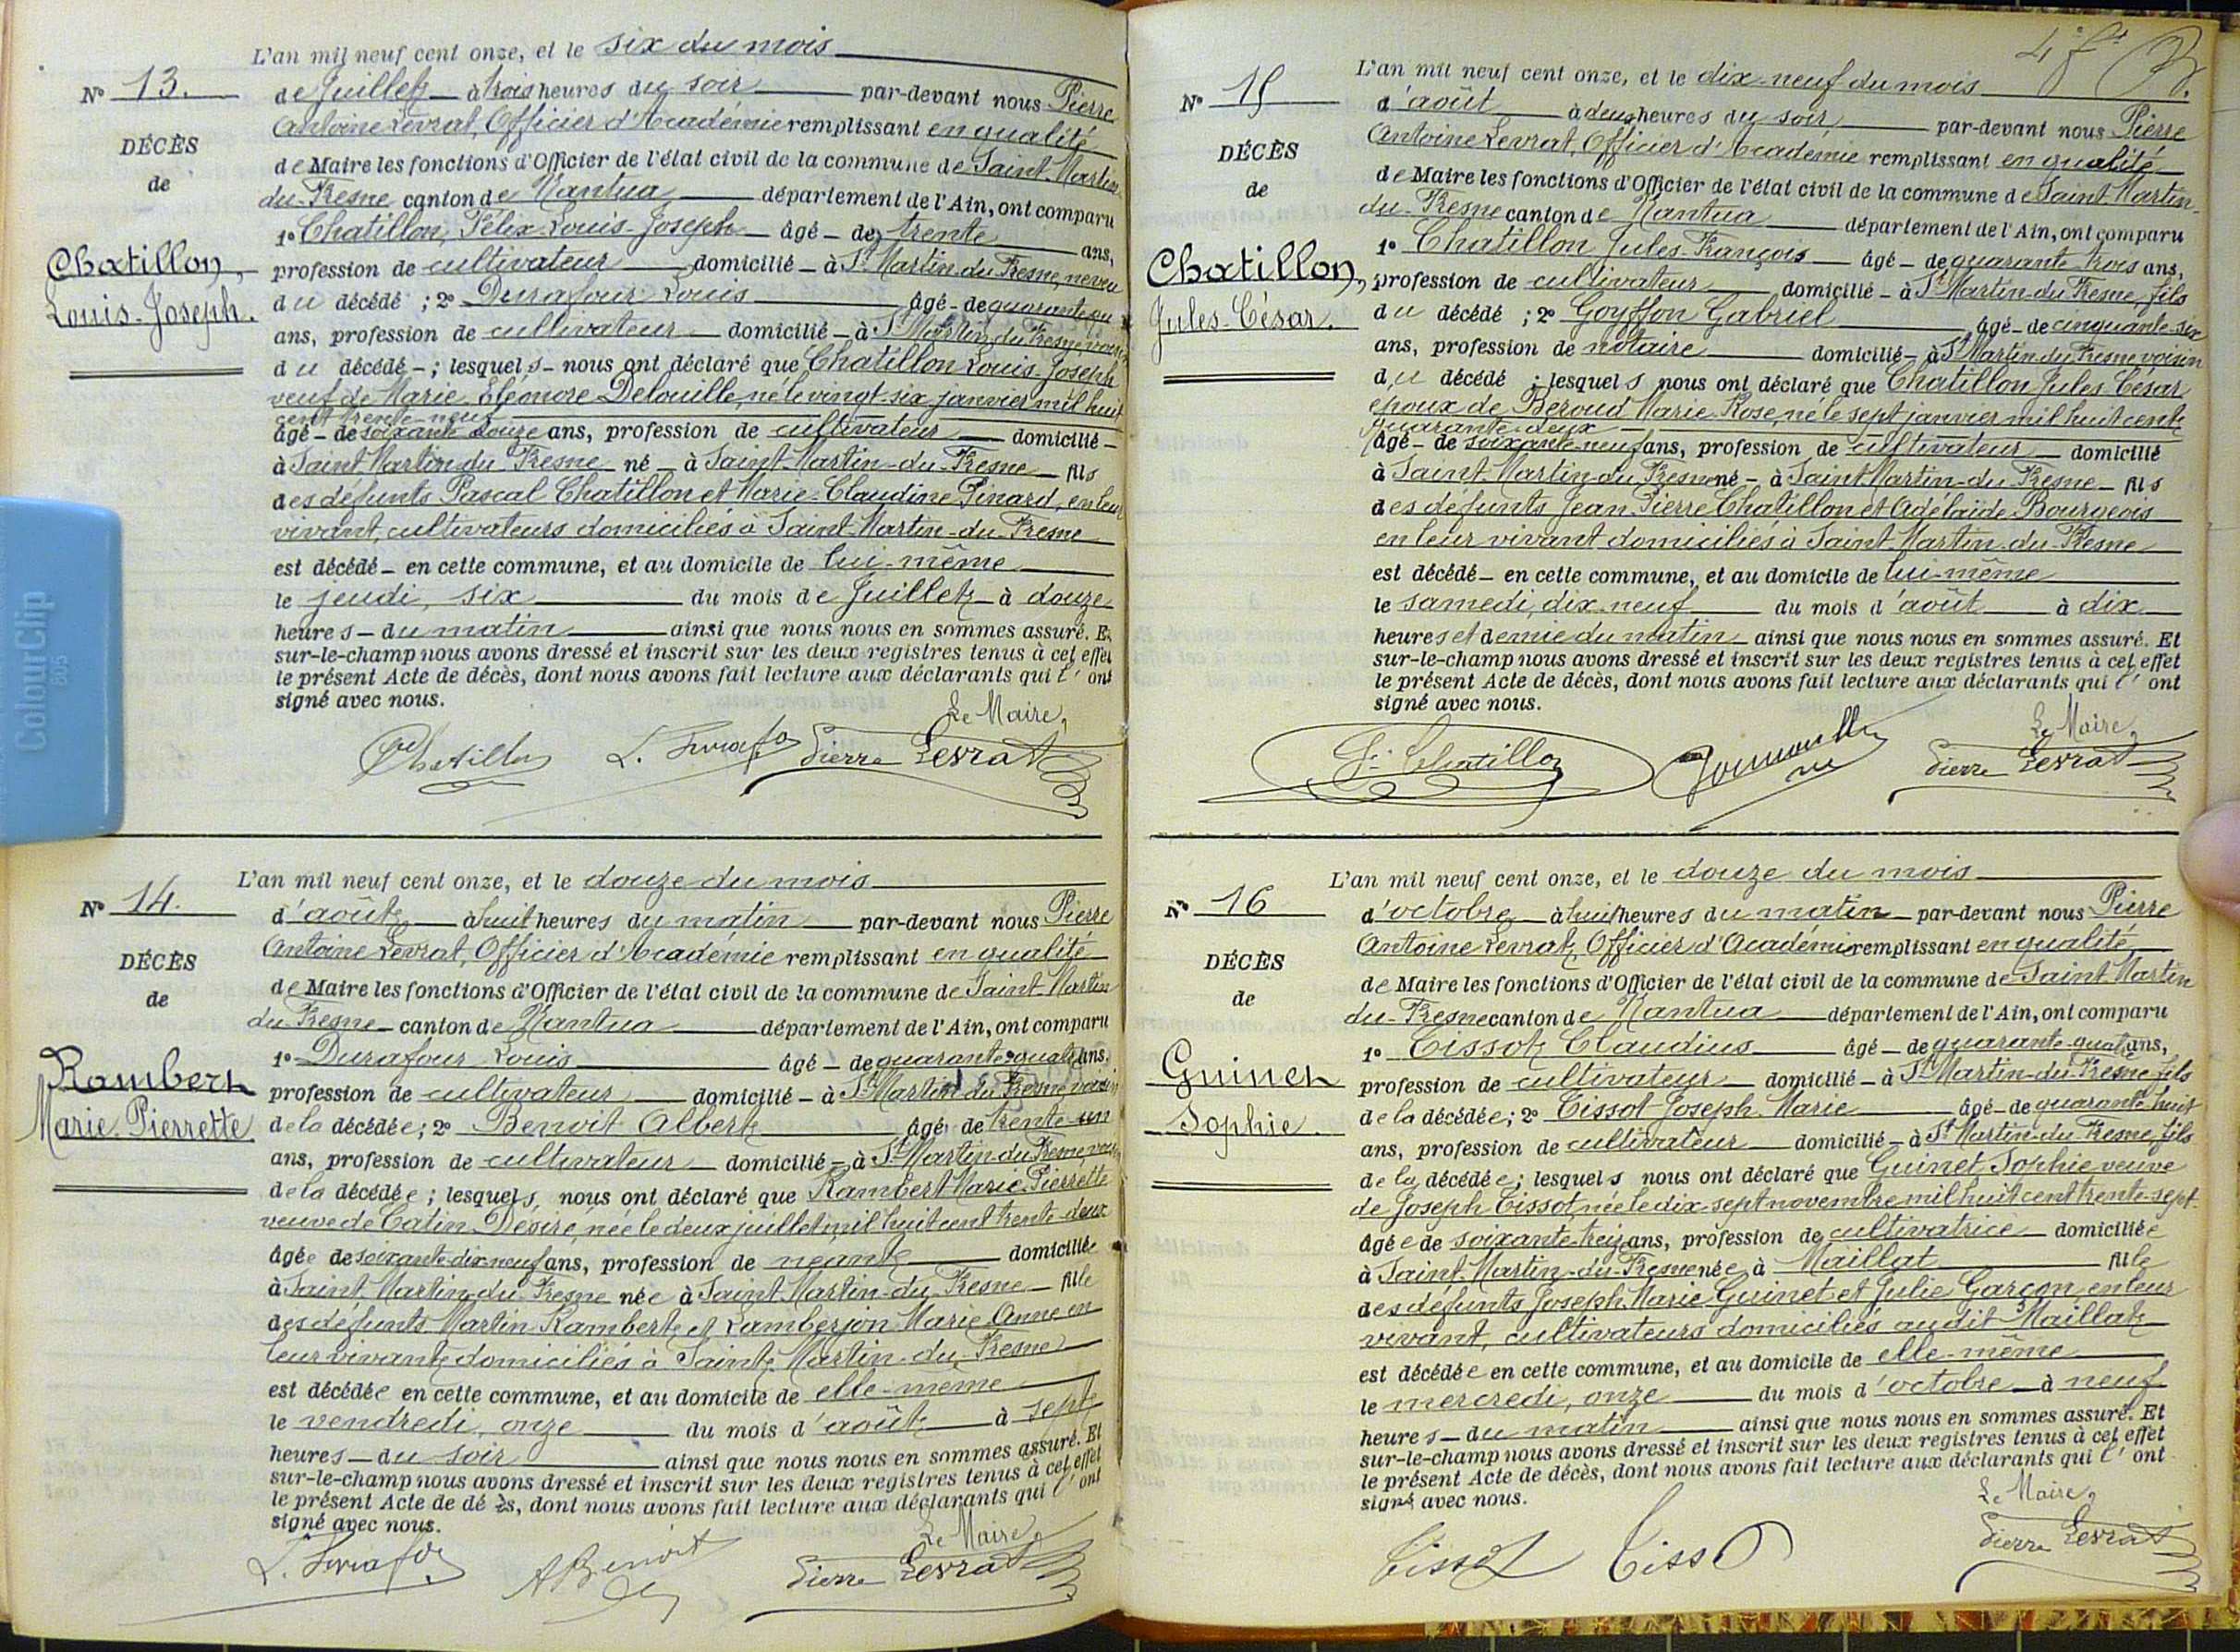 L'an mil neuf cent onze, et le six du mois
N° 13.
de Juillet à trois heures du soir par-devant nous Pierre
Antoine Levrat, Officier d'Académie remplissant en qualité
DÉCÈS
de Maire les fonctions d'Officier de l'état civil de la commune de Saint-Martin
de
du-Fresne canton de Nantua département de l'Ain, ont comparu
1° Chatillon, Félix-Louis-Joseph âgé de trente ans,
Chatillon,
profession de cultivateur domicilié à St Martin-du-Fresne, neveu
Louis-Joseph.
du décédé ; 2° Durafour Louis âgé de quarante
ans, profession de cultivateur domicilié à St Martin-du-Fresne, voisin
du décédé ; lesquels nous ont déclaré que Chatillon Louis-Joseph
veuf de Marie Eléonore Delouille, né le vingt-six janvier mil huit
cent trente-neuf
âgé de soixante douze ans, profession de cultivateur domicilié
à Saint-Martin-du-Fresne né à Saint-Martin-du-Fresne fils
des défunts Pascal Chatillon et Marie-Claudine Pinard, en leur
vivant, cultivateurs domiciliés à Saint-Martin-du-Fresne
est décédé en cette commune, et au domicile de lui-même
le jeudi, six du mois de Juillet à douze
heures du matin ainsi que nous nous en sommes assuré. Et
sur-le-champ nous avons dressé et inscrit sur les deux registres tenus à cet effet
le présent Acte de décès, dont nous avons fait lecture aux déclarants qui l'ont
signé avec nous.
Le Maire,
Chatillon L. Durafo Pierre Levrat
L'an mil neuf cent onze, et le douze du mois
N° 14.
d'août à huit heures du matin par-devant nous Pierre
Antoine Levrat, Officier d'Académie remplissant en qualité
DÉCÈS
de Maire les fonctions d'Officier de l'état civil de la commune de Saint-Martin
de
du-Fresne canton de Nantua département de l'Ain, ont comparu
1° Durafour Louis âgé de quarante-quatre ans,
Rambert
profession de cultivateur domicilié à St Martin du Fresne voisin
Marie-Pierrette
de la décédée ; 2° Benoit Albert âgé de trente-un
ans, profession de cultivateur domicilié à St Martin du Fresne, voisin
de la décédée ; lesquels nous ont déclaré que Rambert Marie-Pierrette
veuve de Catin Désiré, née le deux juillet mil huit cent trente-deux
âgée de soixante-dix-neuf ans, profession de néant domiciliée
à Saint-Martin-du-Fresne née à Saint-Martin-du-Fresne fille
des défunts Martin Rambert et Lamberjon Marie Anne en
leur vivant domiciliés à Saint Martin-du-Fresne
est décédée en cette commune, et au domicile de elle-même
le vendredi, onze du mois d'août à sept
heures du soir ainsi que nous nous en sommes assuré. Et
sur-le-champ nous avons dressé et inscrit sur les deux registres tenus à cet effet
le présent Acte de dé ès, dont nous avons fait lecture aux déclarants qui l'ont
signé avec nous.
Le Maire,
L. Durafo A Benoit Pierre Levrat
L'an mil neuf cent onze, et le dix-neuf du mois
N° 15
d'août à deux heures du soir, par-devant nous Pierre
Antoine Levrat, Officier d'Académie remplissant en qualité
DÉCÈS
de Maire les fonctions d'Officier de l'état civil de la commune de Saint-Martin-
de
du-Fresne canton de Nantua département de l'Ain, ont comparu
1° Chatillon Jules-François âgé de quarante trois ans,
Chatillon,
profession de cultivateur domicilié à St Martin-du-Fresne, fils
Jules-César.
du décédé ; 2° Goyffon Gabriel âgé de cinquante-six
ans, profession de notaire domicilié à St Martin du Fresne voisin
du décédé ; lesquels nous ont déclaré que Chatillon Jules-César
époux de Beroud Marie-Rose, né le sept janvier mil huit cent
quarante-deux
âgé de soixante-neuf ans, profession de cultivateur domicilié
à Saint-Martin-du-Fresne né à Saint-Martin-du-Fresne fils
des défunts Jean-Pierre Chatillon et Adélaïde Bourgeois
en leur vivant domiciliés à Saint-Martin-du-Fresne
est décédé en cette commune, et au domicile de lui-même
le samedi, dix-neuf du mois d'août à dix
heures et demie du matin ainsi que nous nous en sommes assuré. Et
sur-le-champ nous avons dressé et inscrit sur les deux registres tenus à cet effet
le présent Acte de décès, dont nous avons fait lecture aux déclarants qui l'ont
signé avec nous.
Le Maire,
J. Chatillon Pierre Levrat
L'an mil neuf cent onze, et le douze du mois
N° 16
d'octobre à huit heures du matin par-devant nous Pierre
Antoine Levrat, Officier d'Académie remplissant en qualité
DÉCÈS
de Maire les fonctions d'Officier de l'état civil de la commune de Saint-Martin
de
du-Fresne canton de Nantua département de l'Ain, ont comparu
1° Tissot Claudius âgé de quarante-quatre ans,
Guinet
profession de cultivateur domicilié à St Martin-du-Fresne fils
Sophie.
de la décédée ; 2° Tissot Joseph-Marie âgé de quarante huit
ans, profession de cultivateur domicilié à St Martin-du-Fresne, fils
de la décédée ; lesquels nous ont déclaré que Guinet Sophie veuve
de Joseph Tissot, née le dix-sept novembre mil huit cent trente-sept
âgée de soixante-treize ans, profession de cultivatrice domiciliée
à Saint-Martin-du-Fresne née à Maillat fille
des défunts Joseph-Marie Guinet et Julie Garçon, en leur
vivant, cultivateurs domiciliés audit Maillat
est décédée en cette commune, et au domicile de elle-même
le mercredi, onze du mois d'octobre à neuf
heures du matin ainsi que nous nous en sommes assuré. Et
sur-le-champ nous avons dressé et inscrit sur les deux registres tenus à cet effet
le présent Acte de décès, dont nous avons fait lecture aux déclarants qui l'ont
signé avec nous.
Le Maire,
Tissot Tissot Pierre Levrat
ColourClip